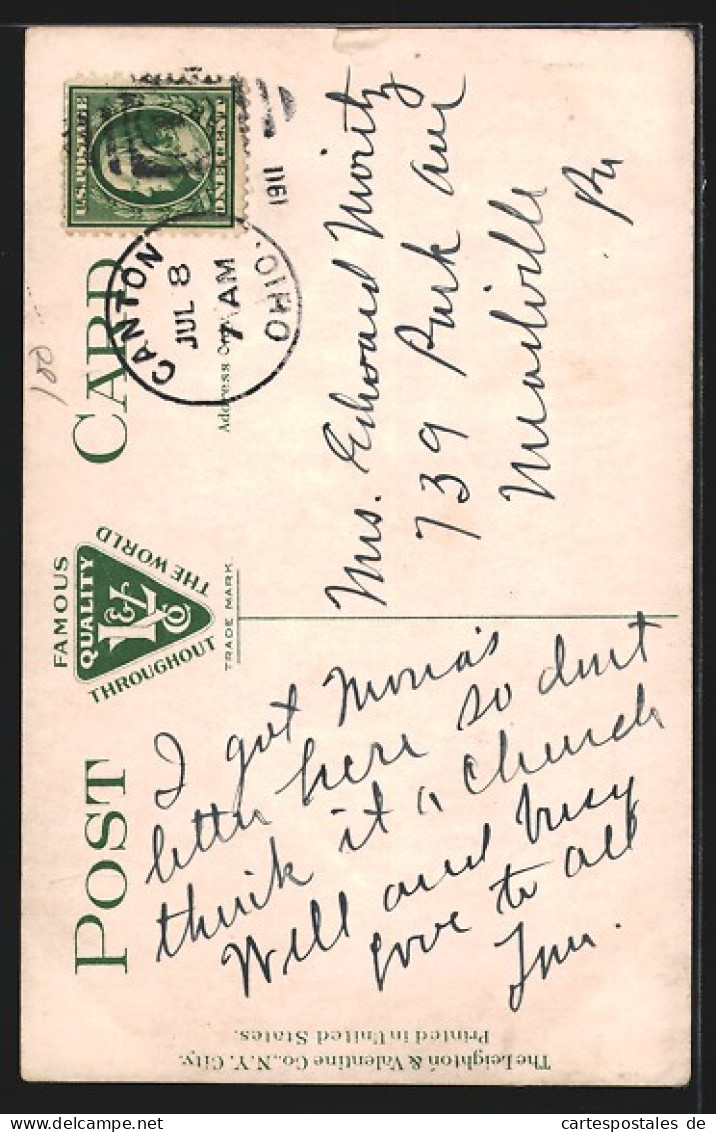 POST CARD
FAMOUS
QUALITY
L&V Co
THROUGHOUT
THE WORLD
TRADE MARK.
Address Only
U.S. POSTAGE
ONE CENT
CANTON
JUL 8
7 AM
OHIO.
1911
100
Mrs. Edward Moritz
739 Park Ave
Meadville
Pa
I got Mona's
letter here so dont
think it a church
Well and busy
love to all
The Leighton & Valentine Co., N.Y. City.
Printed in United States.
cartespostales.de